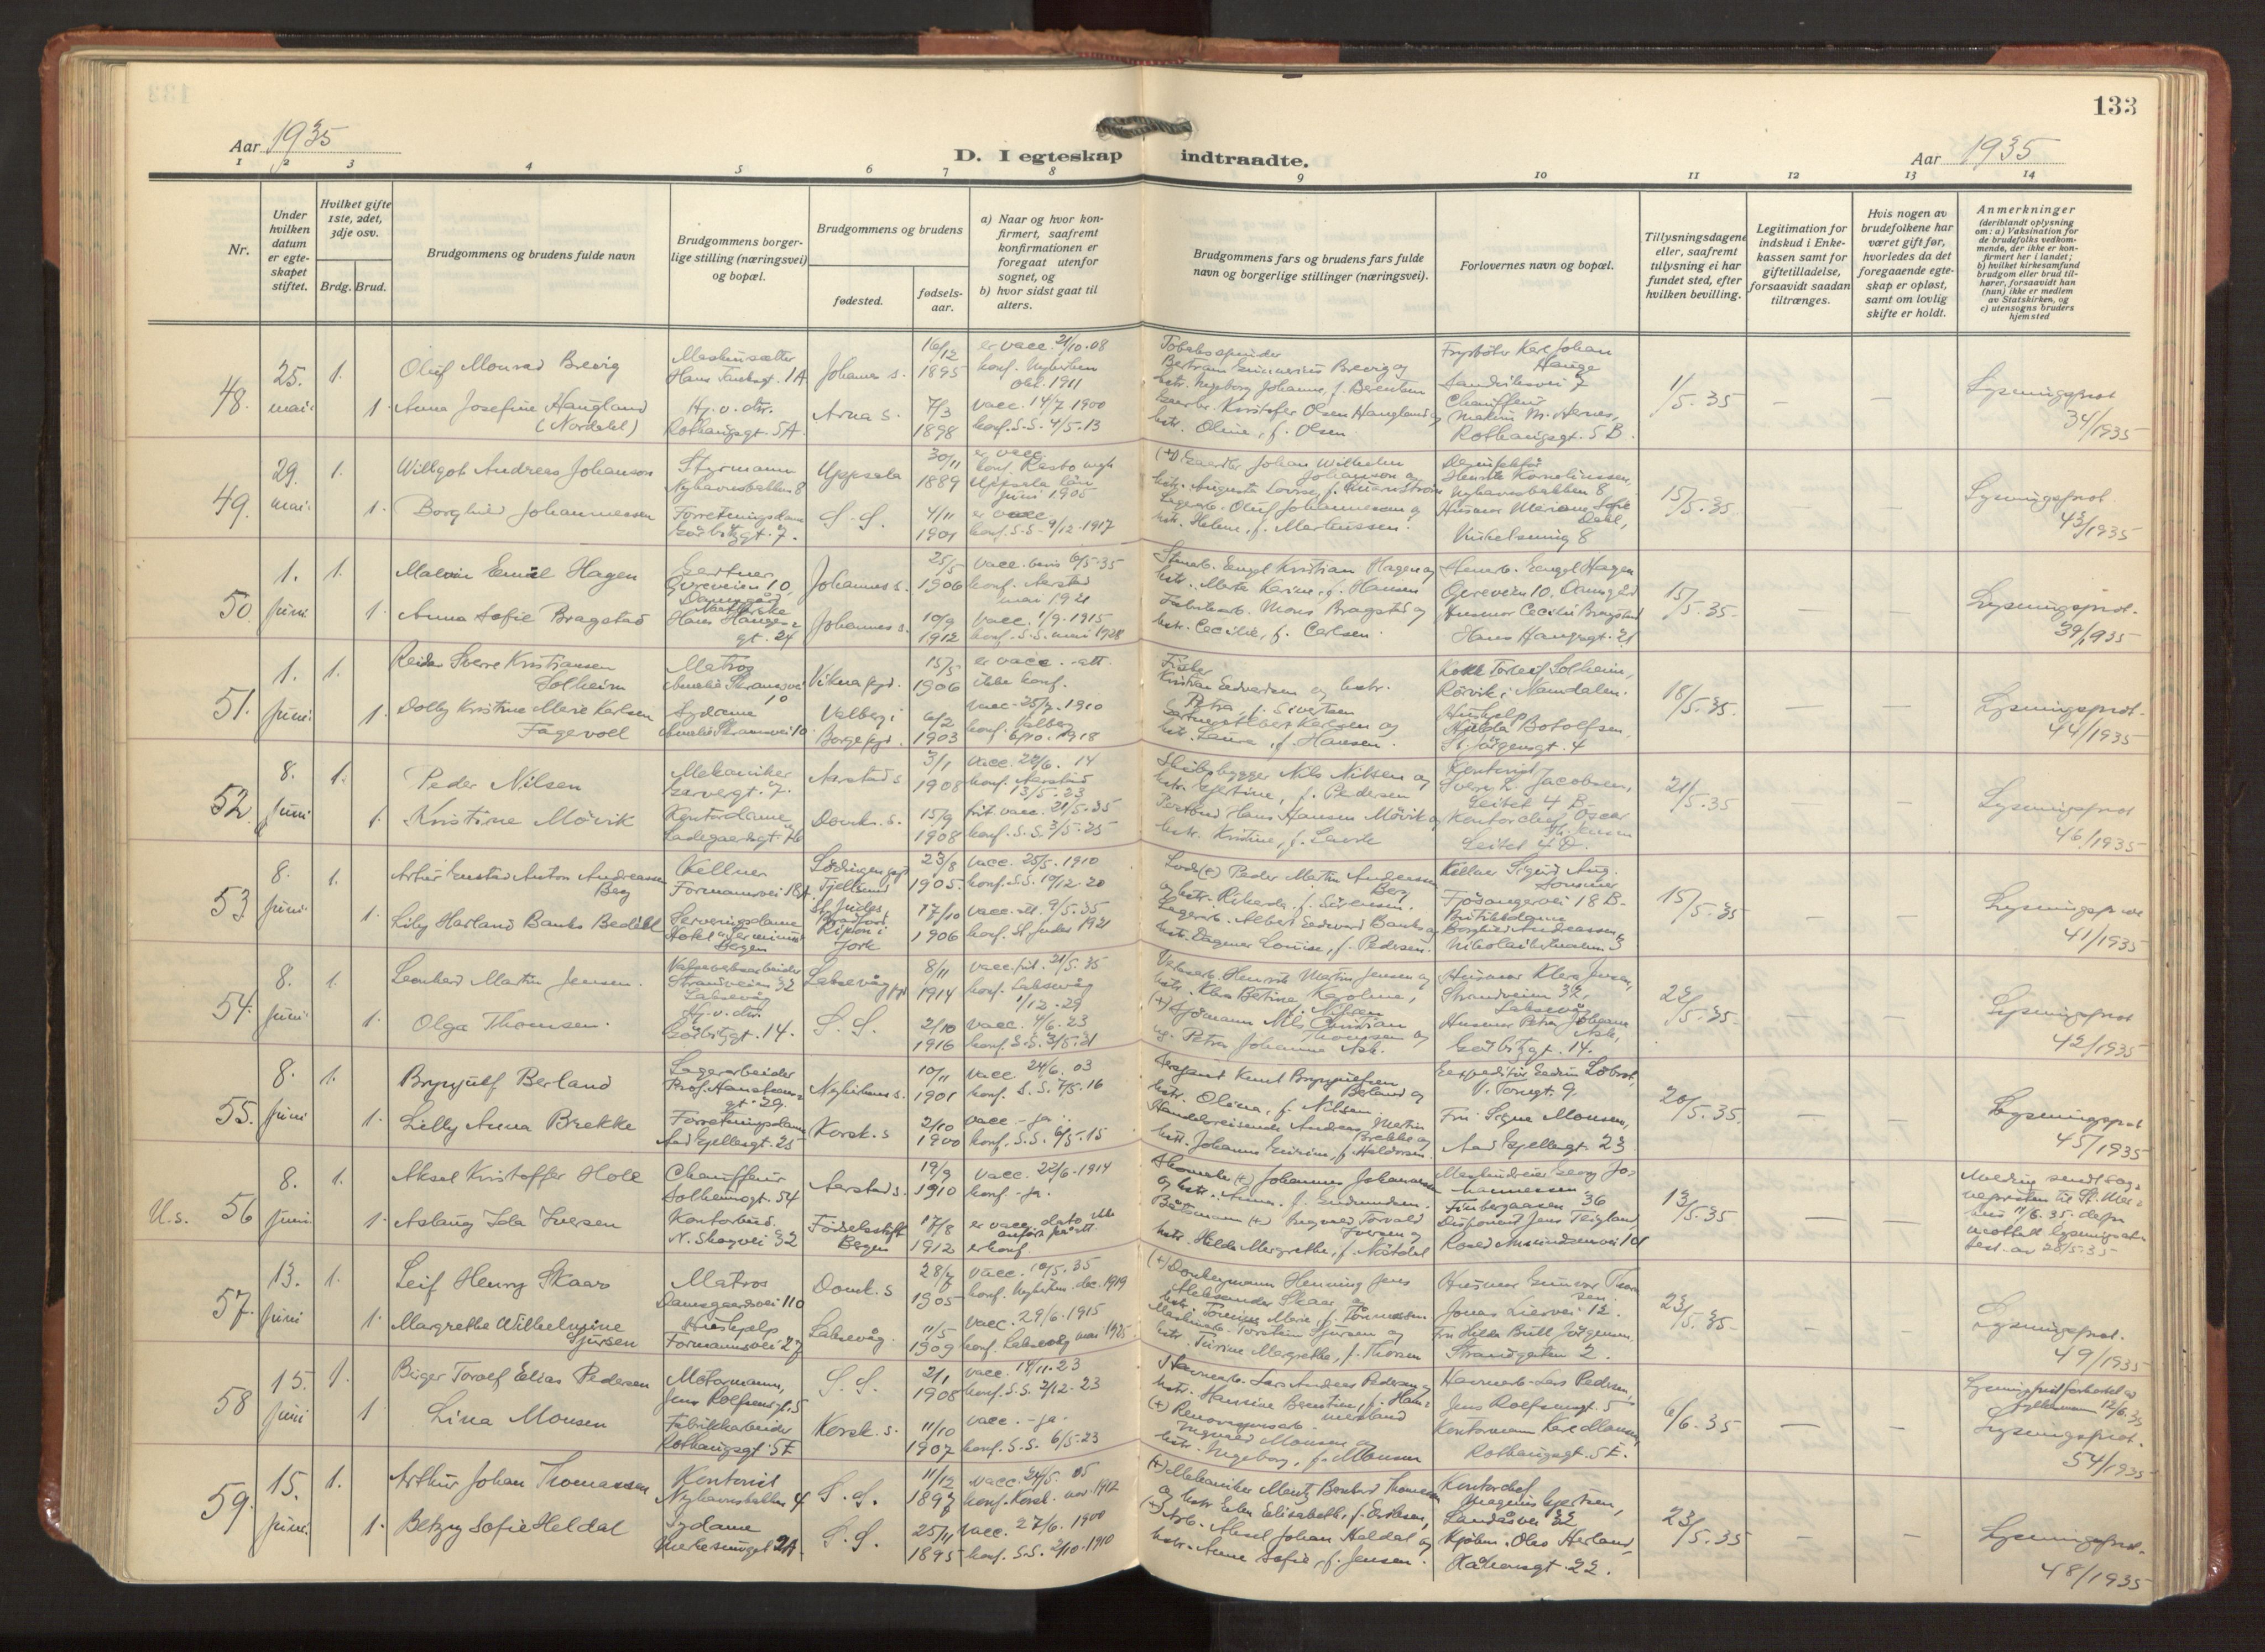 133
Aar 1935
D. I egteskap indtraadte.
Aar 1935
1 2 3 4 5 6 7 8 9 10 11 12 13 14
Nr.
Under hvilken datum er egteskapet stiftet.
Hvilket gifte 1ste, 2det, 3dje osv.
Brdg. Brud.
Brudgommens og brudens fulde navn
Brudgommens borgerlige stilling (næringsvei) og bopæl.
Brudgommens og brudens
fødested.
fødselsaar.
a) Naar og hvor konfirmert, saafremt konfirmationen er foregaat utenfor sognet, og
b) hvor sidst gaat til alters.
Brudgommens fars og brudens fars fulde navn og borgerlige stillinger (næringsvei).
Forlovernes navn og bopæl.
Tillysningsdagene eller, saafremt tillysning ei har fundet sted, efter hvilken bevilling.
Legitimation for indskud i Enkekassen samt for giftetilladelse, forsaavidt saadan tiltrænges.
Hvis nogen av brudefolkene har været gift før, hvorledes da det foregaaende egteskap er opløst, samt om lovlig skifte er holdt.
Anmerkninger
(deriblandt oplysning om: a) Vaksination for de brudefolks vedkommende, der ikke er konfirmert her i landet;
b) hvilket kirkesamfund brudgom eller brud tilhører, forsaavidt han (hun) ikke er medlem av Statskirken, og
c) utensogns bruders hjemsted
48. 25. mai.
1. Oluf Monrad Brevig
Maskinsætter
Johannes s.
16/12 1895
er vacc. 21/10.08
1. Anna Josefine Haugland (Nordahl)
Hj. v. dtr.
Rothaugsgt. 5A
Arna s.
7/3 1898
vacc. 14/7 1900
konf. S.S. 4/5.13
Bertram Gunnerius Brevig og
hstr. Ingeborg Johanne, f. Berentsen
Gaardbr. Kristofer Olsen Haugland og
hstr. Oline, f. Olsen
Karl Johan Hauge
Sandviksvei 7
Chauffeur
Rothaugsgt. 5 B.
1/5.35 — —
Lysningsprot 34/1935
49. 29. mai.
1. Willgot Andreas Johanson
Styrmann
Nyhavnsbakken 8
Uppsala
30/11 1889
er vacc.
juni 1905
1. Borghild Johannessen
Forretningsdame
Gørbitzgt. 7.
S. S.
4/11 1901
er vacc.
konf. S.S. 9/12.1917
(+) Gaardbr. Johan Wilhelm Johanson og
Lagerarb. Oluf Johannessen og
hstr. Helene, f. Markussen.
Nyhavnsbakken 8
Vinkelsmug 8
15/5.35 — —
Lysningsprot. 43/1935
50. 1. juni
1. Malvin Emil Hagen
Gartner
Gyreveien 10,
Damsgård
Johannes s.
25/5 1906
vacc. bevis 6/5-35
konf. Aarstad
mai 1921
1. Anna Sofie Bragstad
Hans Haugesgt. 24
Johannes s.
10/9 1912
vacc. 1/9.1915
konf. S.S. mai 1928
Stenarb. Engel Kristian Hagen og
hstr. Marta Karine, f. Hansen
Fabrikarb. Mons Bragstad og
hstr. Cecilie, f. Carlsen.
Stenarb. Engel Hagen
Gyreveien 10. Damsgård
Husmor Cecilie Bragstad
Hans Haugesgt. 24
15/5.35 — —
Lysningsprot. 39/1935
51. 1. juni.
1. Reidar Sverre Kristiansen Solheim
Matros
Amalie Skramsvei 10
Vikna pgd.
15/5 1906
er vacc. -att.
ikke konf.
1. Dolly Kristine Marie Karlsen Fagevoll
Sydame
Amalie Skramsvei 10
Valberg i Borge pgd.
6/2 1903
vacc. 25/7.1910
konf. Valberg
6/10.1918
Fisker
Kristian Edvardsen og hstr.
Petra, f. Sivertsen
Gartner Albert Karlsen og
hstr. Laura, f. Hansen.
Kokk Torleif Solheim,
Rörvik i Namdalen.
Hushjelp
Hjalda Botolfsen,
St. Jörgensgt. 4
18/5.35. — —
Lysningsprot. 44/1935
52. 8. juni
1. Peder Nilsen
Mekaniker
Garvergt. 7.
Aarstad s.
3/1 1908
vacc. 22/6. 14
konf. Aarstad
13/5.23
1. Kristine Mövik
Kontordame
Ladegaardsgt. 76
Domk. s.
15/9 1908
frit. vacc. 21/5.35
konf. S.S. 3/5.25
Skibsbygger Nils Nilsen og
hstr. Gjertine, f. Pedersen
Postbud Hans Hansen Mövik og
hstr. Kristine, f.
Kontorist
Sverre L. Jacobsen,
Leitet 4 B.
Kontorchef Oscar
Leitet 4 D.
21/5.35 — —
Lysningsprot 46/1935
53. 8. juni
1. Artur Gustav Anton Andreassen Berg
Kellner
Formannsvei 18A.
Lödingen pgd
Tjeldsund
23/8 1905.
vacc. 25/5.1910
konf. S.S. 10/12.20
1. Lily Harland Banks Bedehl
Serveringsdame
Hotel Terminus
Bergen
St. Judes
Bradford
Ripon i York
17/10 1906
vacc. att. 9/5.35
konf. St. Judes 1921
Peder Martin Andreassen Berg
og hstr. Rikarda, f. Sörensen.
Lagerarb. Albert Edward Banks og
hstr. Dagmar Louise, f. Pedersen.
Kellner Sigurd Aug.
Fjösangervei 18 B.
Borghild Andreassen,
15/5.35 — —
Lysningsprot 41/1935
54. 8. juni
1. Leonhard Martin Jensen.
Valseverksarbeider
Strandveien 32
Laksevåg
Laksevåg pgd
8/11 1914
vacc. frit. 21/5.35
konf. Laksevåg
1/12.29
1. Olga Thomsen.
Hj. v. dtr.
Görbitzgt. 14.
S. S.
2/10 1916
vacc. 4/6.23
konf. S.S. 3/5.31
Valsearb. Henrik Martin Jensen og
hstr. Klara Betine Karoline,
f. Nilsen
Nils Christian Thomsen og
ug. Petra Johanne Ask.
Husmor Klara Jensen,
Strandveien 32,
Laksevåg
Husmor Petra Johanne Ask,
Görbitzgt. 14.
22/5.35. — —
Lysningsprot 42/1935
55. 8. juni
1. Brynjulf Berland
Lagerarbeider
Prof. Hansteensgt. 29.
Nykirkens s.
10/11 1901
vacc 24/6. 03
konf. S.S. 7/5.16
1. Lilly Anna Brekke
Forretningsdame
Aad Gjellesgt. 25
Korsk. s
2/10 1900
vacc - ja.
konf. S.S. 6/5.15
Sersjant Knut Brynjulfsen Berland og
hstr. Olina, f. Nilsen
Handelsreisende Andreas Martin Brekke og
hstr. Johanna, f. Haldorsen.
V. Torvgt. 9.
Frk. Signe Monsen,
Aad Gjellesgt. 23
20/5.35. — —
Lysningsprot 45/1935
U.s. 56 8. juni
1. Aksel Kristoffer Holl
Chauffeur
Solheimsgt. 54
Aarstad s.
19/9 1910
vacc. 22/6.1914
konf. -ja.
1. Aslaug Ida Iversen
Kontorbud.
N. Skogvei 32
Fødselsstift. Bergen
17/8 1912
er vacc. dato ikke anfört på att.
er konf.
Johannes Johannessen
og hstr. Anna, f. Gudmundsen.
Båtsmann (+) Ingvald Torvald Iversen og
hstr. Hilda Margrethe, f. Nötdal
Georg Johannessen
Finbergaasen 36
Disponent Jens Teigland
Roald Amundsensvei 14
13/5.35 — —
Melding sendt sogneprest til St. Markus 11/6.35. da mottatt lysningsattest. av 28/5.35
57. 13. juni
1. Leif Henry Skaar
Matros
Damsgaardsvei 110
Domk. s
28/7 1905
vacc. 10/5.35
konf. Nykirken. dec. 1919
1. Margrethe Wilhelmine Sjursen
Hushjelp
Formannsvei 27
Laksevåg.
11/5 1909
vacc. 29/6.1915
konf. Laksevåg mai 1925
(+) Donkeymann Henning Jens
Aleksander Skaar og
Maskinarb. Torstein Sjursen og
hstr. Turine Margrethe, f. Thorsen
Husmor Gunvor Thorsen.
Jonas Liesvei 12.
Fru Hilda Bull Jörgensen,
Strandgaten 2.
23/5.35. — —
Lysningsprot. 49/1935
58 15. juni
1. Birger Torolf Elias Pedersen
Motormann,
Jens Rolfsensgt. 5
S. S.
2/1 1908
vacc. 14/11.23
konf. S.S. 2/12.23
1 Lina Monsen
Fabrikkarbeider
Rothaugsgt. 5E
Korsk. s.
11/10 1907
vacc. - ja.
konf. S.S. 6/5.23
Havnearb. Lars Andreas Pedersen og
(+) Renovasjonsarb.
Ingvald Monsen og
hstr. Ingeborg, f. Monsen
Havnearb. Lars Pedersen,
Jens Rolfsensgt. 5
Kontormann Karl Monsen,
Rothaugsgt. 5E.
6/6.35 — —
Lysningsprot. 54/1935
59. 15. juni.
1. Arthur Johan Thomassen
Kontorist
Nyhavnsbakken 4
S. S.
11/12 1897
vacc. 24/5. 05
konf. Korsk. nov. 1912
1. Betzy Sofie Heldal
Sydame
S. S.
25/11 1895
vacc. 27/6. 1900
konf. S.S. 2/10.1910
(+) Mekaniker Mentz Bernhard Thomassen
og hstr. Elen Elisabeth, f. Eriksen,
(+) Arb. Aksel Johan Heldal og
hstr. Anne Sofie, f. Jensen.
Kontorchef
Magnus Gjertsen,
Landåsvei 32
Kjöbm. Olav Herland,
23/5.35 — —
Lysningsprot. 48/1935